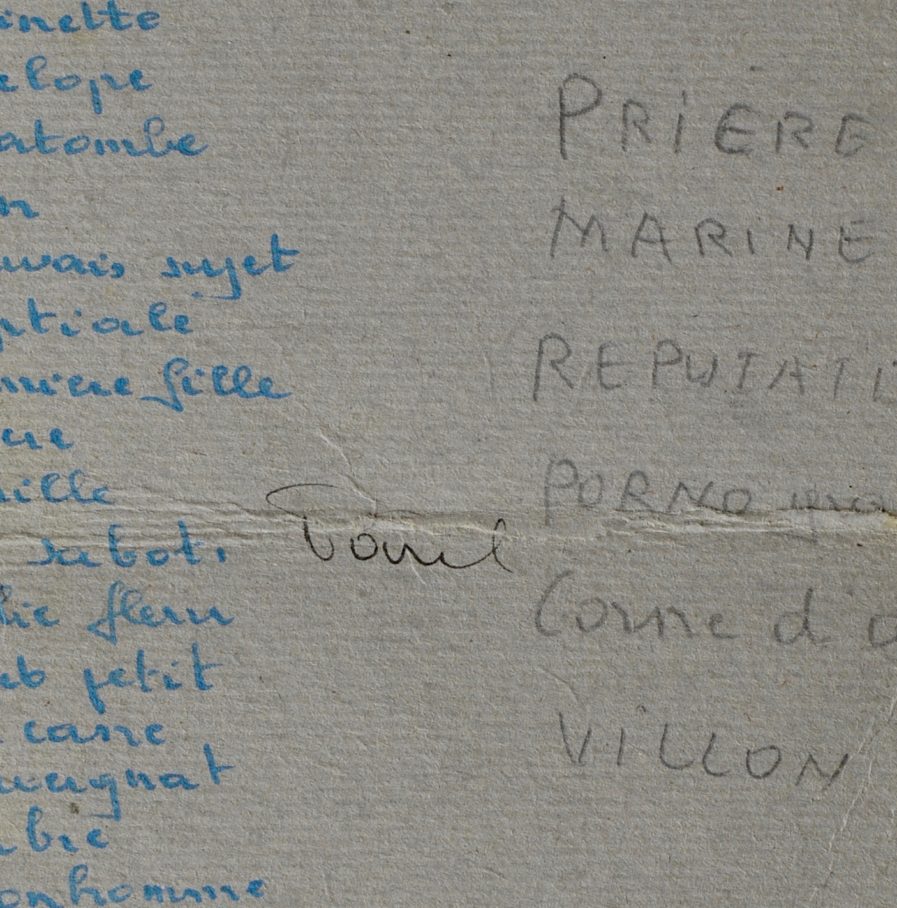 inette
elope
atombe
n
uvais sujet
ptiale
mière fille
ue
ille
sabots
lie fleur
ub petit
casse
uvergnat
bre
onhomme
PRIERE
MARINE
REPUTATI
PORNOgra
Corne d'a
VILLON